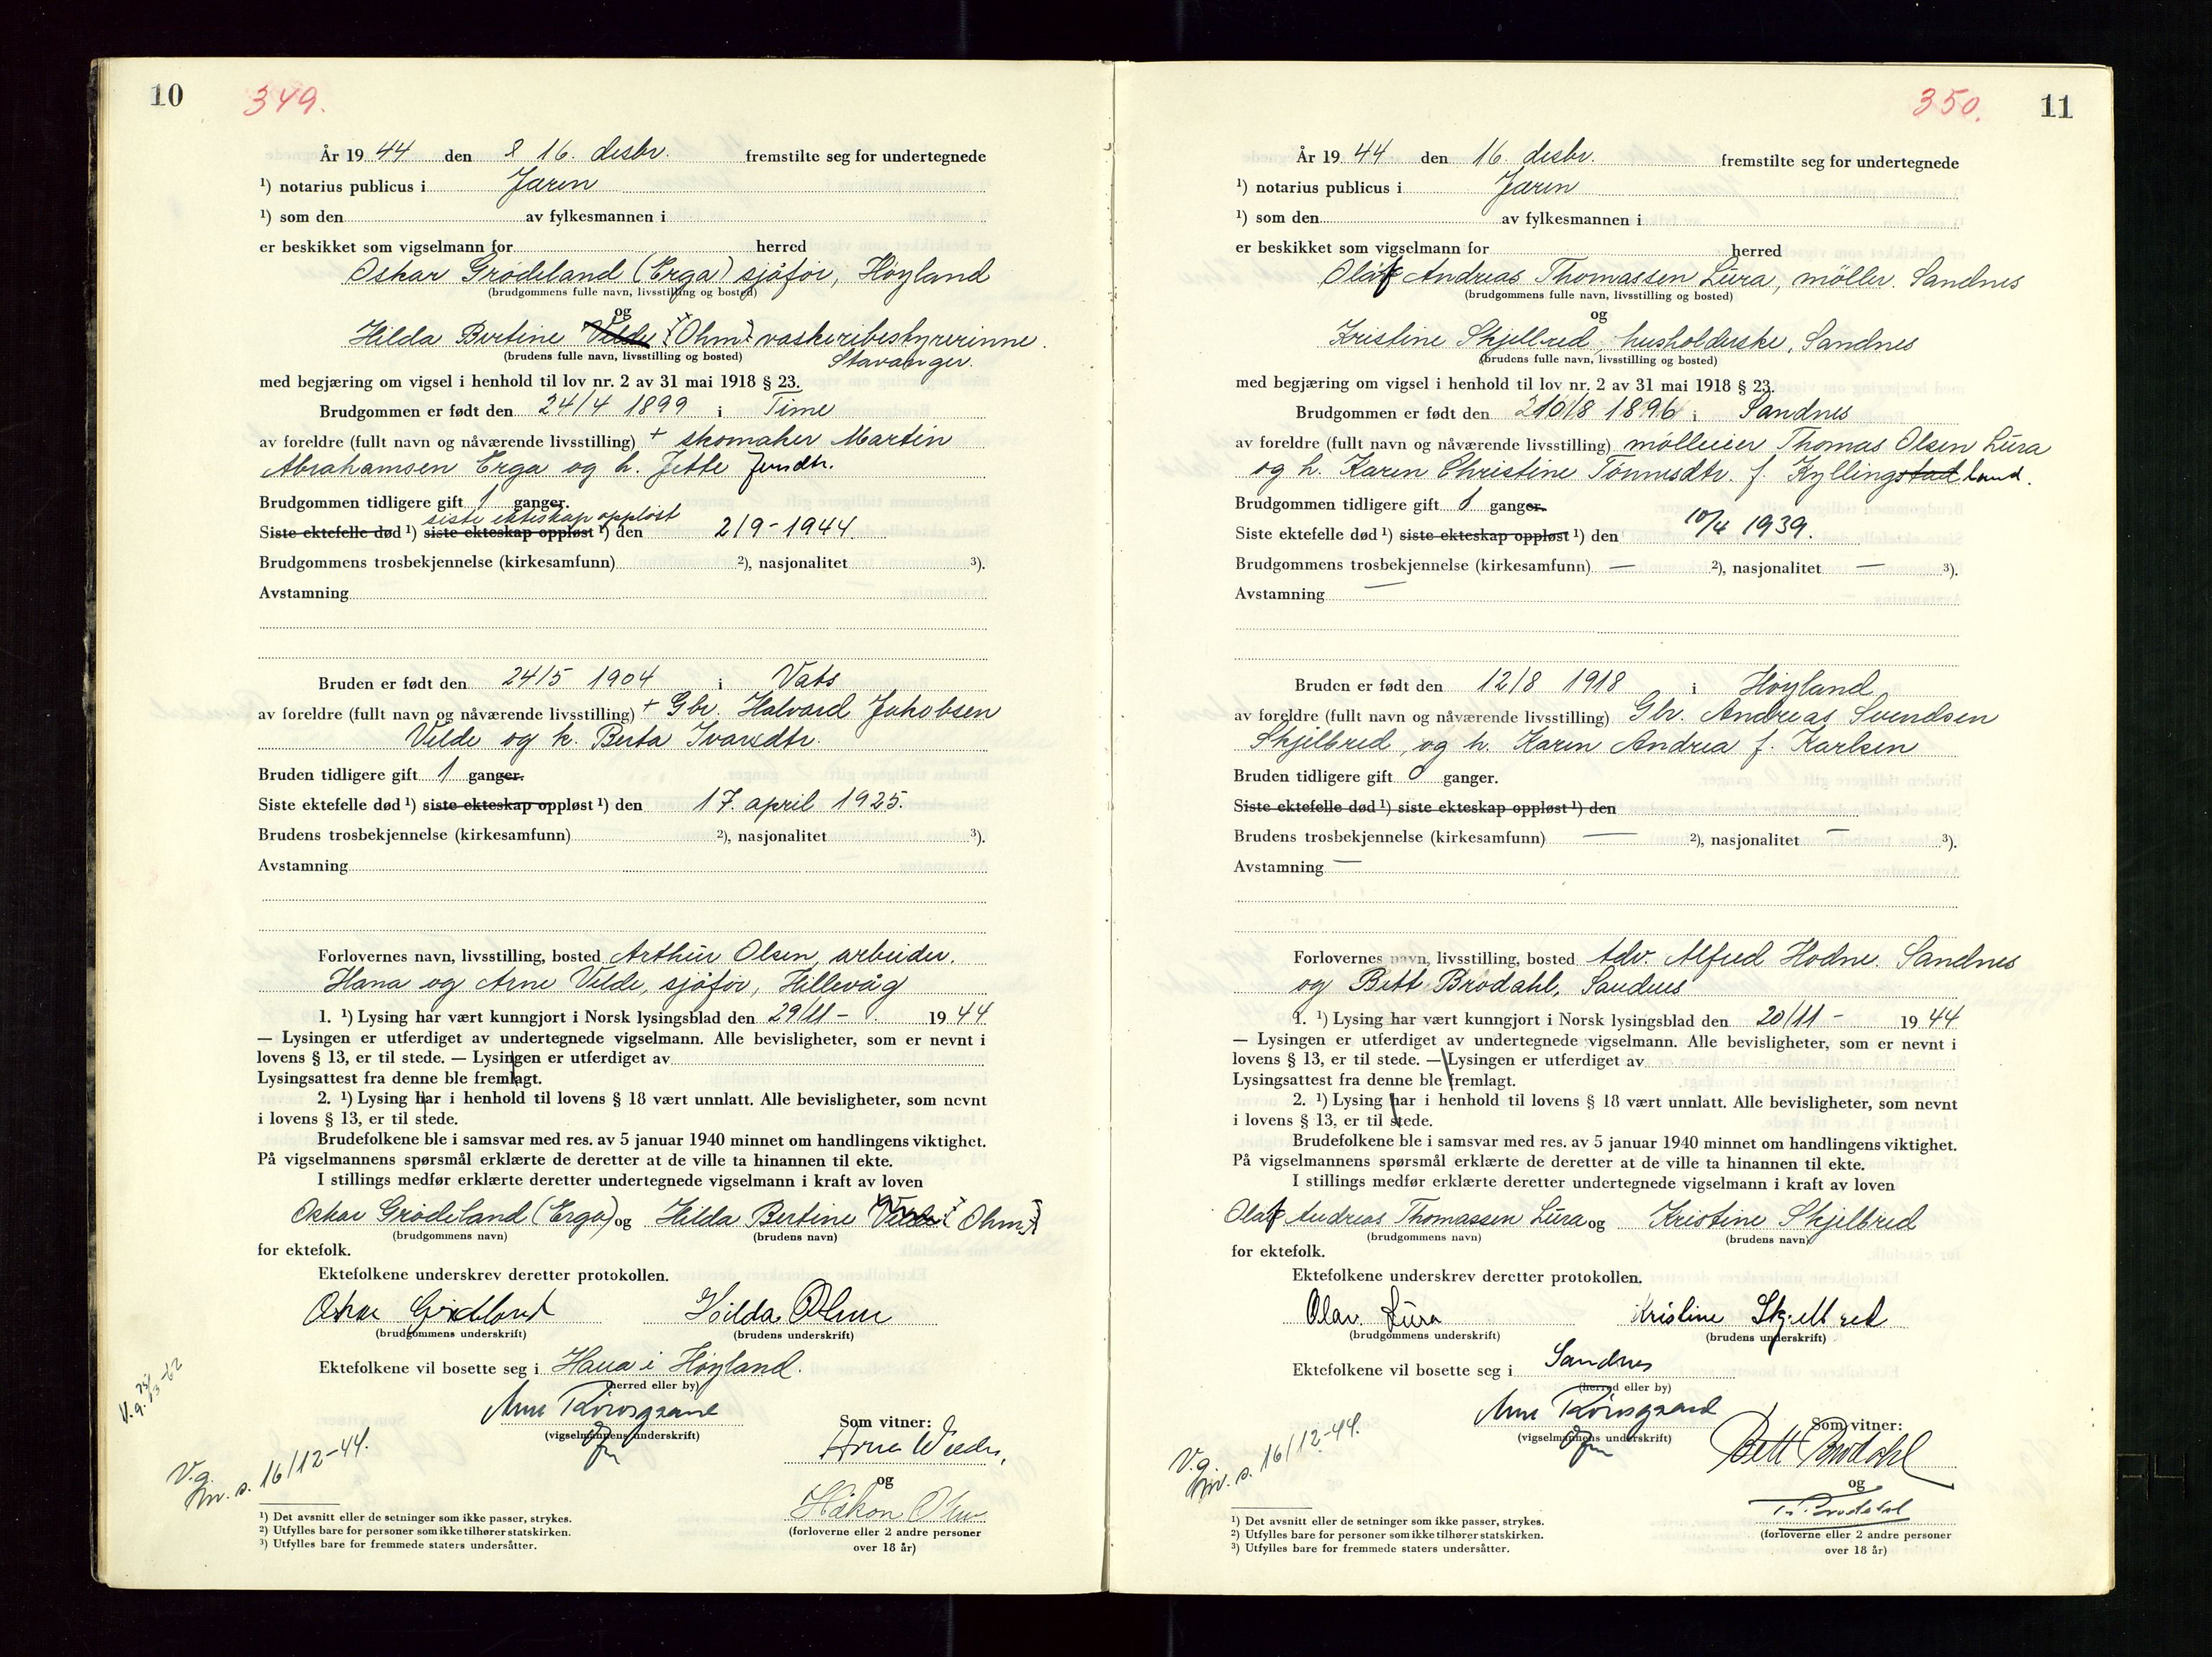 10
349.
År 19 44 den 16. desbr. fremstilte seg for undertegnede
¹) notarius publicus i Jæren
¹) som den av fylkesmannen i
er beskikket som vigselmann for herred
Oskar Grødeland (Erga) sjåfør, Høyland
(brudgommens fulle navn, livsstilling og bosted)
og
Hilda Bertine Velde (Ohm) vaskeribestyrerinne.
(brudens fulle navn, livsstilling og bosted) Stavanger.
med begjæring om vigsel i henhold til lov nr. 2 av 31 mai 1918 § 23.
Brudgommen er født den 24/4 1899 i Time
av foreldre (fullt navn og nåværende livsstilling) + skomaker Martin
Abrahamsen Erga og h. Jette
Brudgommen tidligere gift 1 ganger.
siste ekteskap oppløst
Siste ektefelle død ¹) siste ekteskap oppløst ¹) den 2/9-1944.
Brudgommens trosbekjennelse (kirkesamfunn) ²), nasjonalitet ³).
Avstamning
Bruden er født den 24/5 1904 i Vats
av foreldre (fullt navn og nåværende livsstilling) + Gbr. Halvard Jakobsen
Velde og h. Berta Ivarsdtr.
Bruden tidligere gift 1 ganger.
Siste ektefelle død ¹) siste ekteskap oppløst ¹) den 17. april 1925.
Brudens trosbekjennelse (kirkesamfunn) ²), nasjonalitet ³).
Avstamning
Forlovernes navn, livsstilling, bosted Arthur Olsen, arbeider.
Hana og Arne Velde, sjåfør, Hillevåg
1. ¹) Lysing har vært kunngjort i Norsk lysingsblad den 29/11 - 19 44
— Lysingen er utferdiget av undertegnede vigselmann. Alle bevisligheter, som er nevnt i
lovens § 13, er til stede. — Lysingen er utferdiget av
Lysingsattest fra denne ble fremlagt.
2. ¹) Lysing har i henhold til lovens § 18 vært unnlatt. Alle bevisligheter, som nevnt
i lovens § 13, er til stede.
Brudefolkene ble i samsvar med res. av 5 januar 1940 minnet om handlingens viktighet.
På vigselmannens spørsmål erklærte de deretter at de ville ta hinannen til ekte.
I stillings medfør erklærte deretter undertegnede vigselmann i kraft av loven
Oskar Grødeland (Erga) og Hilda Bertine Velde (Ohm)
(brudgommens navn) (brudens navn)
for ektefolk.
Ektefolkene underskrev deretter protokollen.
Oskar Grødeland Hilda Ohm
(brudgommens underskrift) (brudens underskrift)
Ektefolkene vil bosette seg i Hana i Høyland.
(herred eller by)
Arne
(vigselmannens underskrift)
Som vitner:
Arne Velde,
og
Håkon Ohm
(forloverne eller 2 andre personer
over 18 år)
V.g. -62
V.g. s. 16/12-44.
¹) Det avsnitt eller de setninger som ikke passer, strykes.
²) Utfylles bare for personer som ikke tilhører statskirken.
³) Utfylles bare for fremmede staters undersåtter.
11
350.
År 19 44 den 16. desbr. fremstilte seg for undertegnede
¹) notarius publicus i Jæren
¹) som den av fylkesmannen i
er beskikket som vigselmann for herred
Olaf Andreas Thomassen Lura, møller. Sandnes
(brudgommens fulle navn, livsstilling og bosted)
og
Kristine Skjelbred, husholderske, Sandnes
(brudens fulle navn, livsstilling og bosted)
med begjæring om vigsel i henhold til lov nr. 2 av 31 mai 1918 § 23.
Brudgommen er født den /8 1896 i Sandnes
av foreldre (fullt navn og nåværende livsstilling) mølleeier Thomas Olsen Lura
og h. Karen Christine Tønnesdtr. f. Kyllingstad land.
Brudgommen tidligere gift 1 ganger.
Siste ektefelle død ¹) siste ekteskap oppløst ¹) den 10/4 1939.
Brudgommens trosbekjennelse (kirkesamfunn) — ²), nasjonalitet — ³).
Avstamning —
Bruden er født den 12/8 1918 i Høyland
av foreldre (fullt navn og nåværende livsstilling) Gbr. Andreas Svendsen
Skjelbred, og h. Karen Andrea f. Karlsen
Bruden tidligere gift 0 ganger.
Siste ektefelle død ¹) siste ekteskap oppløst ¹) den
Brudens trosbekjennelse (kirkesamfunn) — ²), nasjonalitet — ³).
Avstamning —
Forlovernes navn, livsstilling, bosted Adv. Alfred Hodne. Sandnes
og Bett Brødahl, Sandnes
1. ¹) Lysing har vært kunngjort i Norsk lysingsblad den 20/11 - 19 44
— Lysingen er utferdiget av undertegnede vigselmann. Alle bevisligheter, som er nevnt i
lovens § 13, er til stede. — Lysingen er utferdiget av
Lysingsattest fra denne ble fremlagt.
2. ¹) Lysing har i henhold til lovens § 18 vært unnlatt. Alle bevisligheter, som nevnt
i lovens § 13, er til stede.
Brudefolkene ble i samsvar med res. av 5 januar 1940 minnet om handlingens viktighet.
På vigselmannens spørsmål erklærte de deretter at de ville ta hinannen til ekte.
I stillings medfør erklærte deretter undertegnede vigselmann i kraft av loven
Olaf Andreas Thomassen Lura og Kristine Skjelbred
(brudgommens navn) (brudens navn)
for ektefolk.
Ektefolkene underskrev deretter protokollen.
Olav Lura Kristine Skjelbred
(brudgommens underskrift) (brudens underskrift)
Ektefolkene vil bosette seg i Sandnes
(herred eller by)
Arne
(vigselmannens underskrift)
Som vitner:
Bett Brødahl
og
(forloverne eller 2 andre personer
over 18 år)
V.g. s. 16/12-44.
¹) Det avsnitt eller de setninger som ikke passer, strykes.
²) Utfylles bare for personer som ikke tilhører statskirken.
³) Utfylles bare for fremmede staters undersåtter.